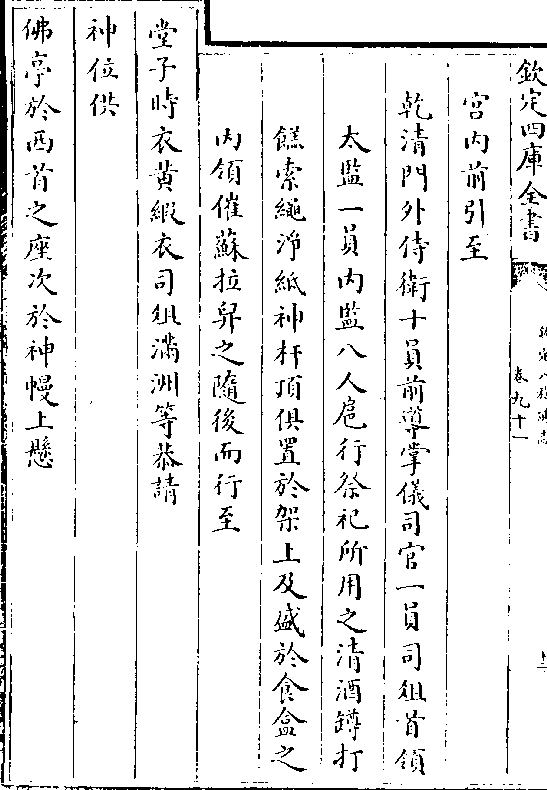 欽定四庫全書
欽定八旗通志
卷九十一
宫内前引至
乾清門外侍衛十員前導掌儀司官一員司俎首領
太監一員内監八人扈行祭祀所用之清酒罇打
餻索繩淨紙神杆頂俱置於架上及盛於食盒之
内領催蘇拉舁之隨後而行至
堂子時衣黄緞衣司俎滿洲等恭請
神位供
佛亭於西首之座次於神幔上懸